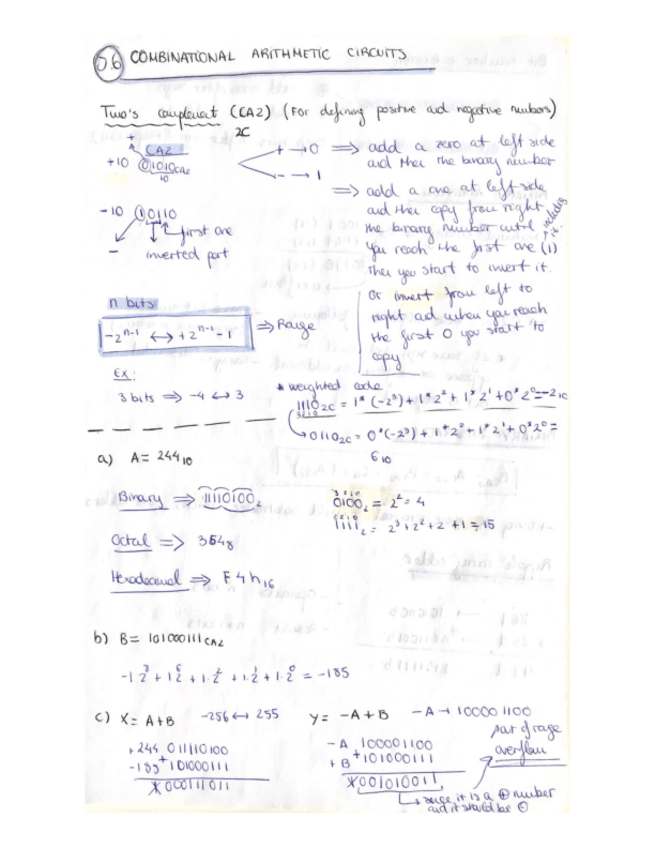 0.6 COMBINATIONAL ARITHMETIC CIRCUITS
Two's complement (CA2) (For defining positive and negative numbers)
2C
+
CA2
+10 01010CA2
10
+ → 0 ⇒ add a zero at left side
and then the binary number
- → 1
⇒ add a one at left side
and then copy from right
the binary number until
you reach the first one (1) including it.
Then you start to invert it.
-10 10110
first one
- inverted part
Or invert from left to
right and when you reach
the first 0 you start to
copy
n bits
-2^n-1 ↔ +2^n-1 - 1 ⇒ Range
Ex:
3 bits ⇒ -4 ↔ 3
* weighted code
1110 2C = 1*(-2^3) + 1*2^2 + 1*2^1 + 0*2^0 = -2 10
3210
→ 0110 2C = 0*(-2^3) + 1*2^2 + 1*2^1 + 0*2^0 =
6 10
a) A = 244 10
Binary ⇒ 11110100 2
3210
0100 2 = 2^2 = 4
3210
1111 2 = 2^3 + 2^2 + 2 + 1 = 15
Octal ⇒ 364 8
Hexadecimal ⇒ F4h 16
b) B = 101000111 CA2
-1·2^8 + 1·2^6 + 1·2^2 + 1·2^1 + 1·2^0 = -185
c) X = A+B -256 ↔ 255
+244 011110100
-185 + 101000111
X000111011
Y = -A + B -A → 100001100
-A 100001100
+B + 101000111
X001010011
overflow
→ since it is a ⊕ number
and it should be ⊖